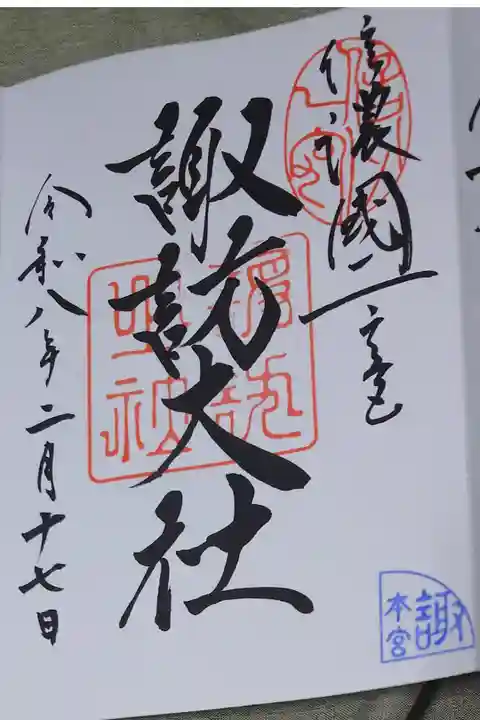 信濃國一之宮
諏訪大社
令和八年二月十七日
諏
本宮